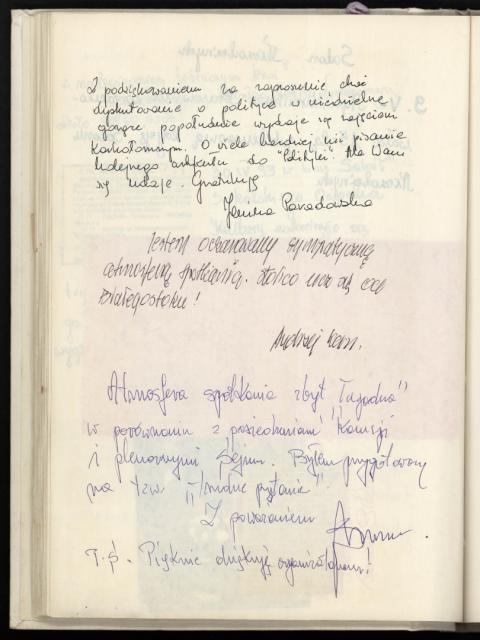 Z podziękowaniem za zaproszenie choć
dyskutowanie o polityce w niedzielne
gorące popołudnie wydaje się zajęciem
karkołomnym. O wiele bardziej niż pisanie
kolejnego artykułu do "Polityki". Ale Wam
się udaje. Gratuluję
Janina Paradowska
Jestem oczarowany sympatyczną
atmosferą spotkania. się od
Białegostoku!
Andrzej Kern.
Atmosfera spotkania zbyt "łagodna"
w porównaniu z posiedzeniami Komisji
i plenarnymi Sejmu. Byłem przygotowany
na tzw. "trudne pytania".
Z poważaniem
P.S. Pięknie dziękuję organizatorom!